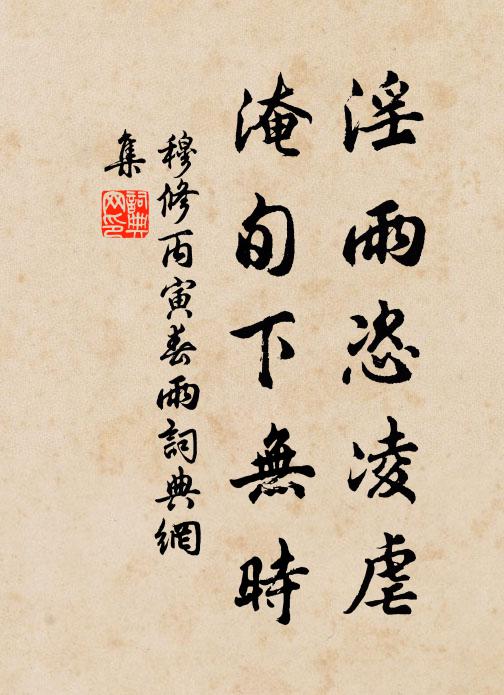 淫雨恣凌虐
淹旬下無時
穆修丙寅春雨詞典網
集
詞典
网印